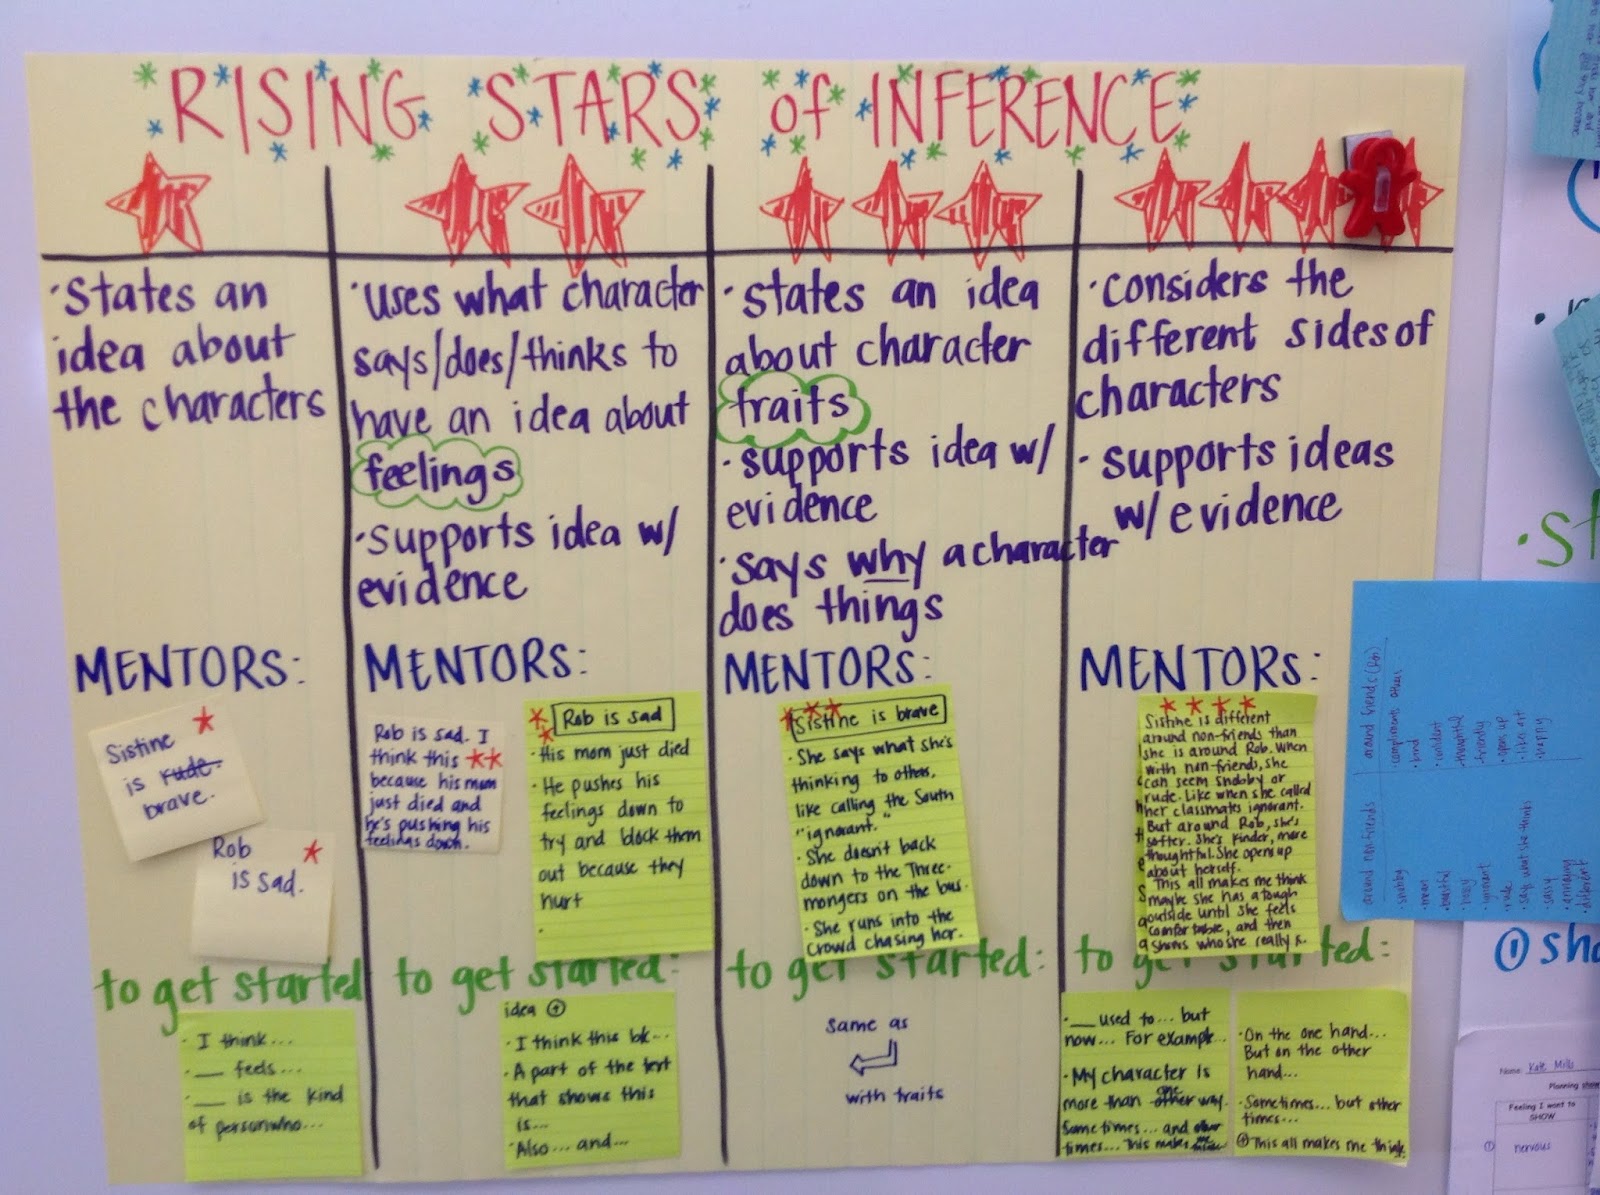 RISING STARS of INFERENCE
· States an
idea about
the characters
MENTORS:
Sistine
is rude
brave.
Rob
is sad.
to get started
· I think...
· ___ feels...
· ___ is the kind
of person who...
· uses what character
says/does/thinks to
have an idea about
feelings
· supports idea w/
evidence
MENTORS:
Rob is sad. I
think this
because his mom
just died and
he's pushing his
feelings down.
Rob is sad
· His mom just died
· He pushes his
feelings down to
try and block them
out because they
hurt
·
to get started:
idea
· I think this b/c...
· A part of the text
that shows this
is...
· Also... and...
· states an idea
about character
traits
· supports idea w/
evidence
· says why a character
does things
MENTORS:
Sistine is brave
· She says what she's
thinking to others,
like calling the South
"ignorant."
· She doesn't back
down to the Three-
mongers on the bus.
· She runs into the
crowd chasing her.
to get started:
same as
with traits
· considers the
different sides of
characters
· supports ideas
w/ evidence
MENTORS:
Sistine is different
around non-friends than
she is around Rob. When
with non-friends, she
can seem snobby or
rude. Like when she called
her classmates ignorant.
But around Rob, she's
softer. She's kinder, more
thoughtful. She opens up
about herself.
This all makes me think
maybe she has a tough
outside until she feels
comfortable, and then
shows who she really is.
to get started:
· ___ used to... but
now... For example...
· My character is
more than one way.
Sometimes... and other
times... This makes me
· On the one hand...
But on the other
hand...
· Sometimes... but other
times...
This all makes me think
around non-friends
· snobby
· mean
· ignorant
· rude
· says what she thinks
· sassy
· annoying
· different
around friends (Rob)
· compliments others
· kind
· confident
· thoughtful
· friendly
· opens up
· likes art
· happy
· st
① sho
Name: Kate Mills
Planning
Feeling I want to
SHOW
① nervous